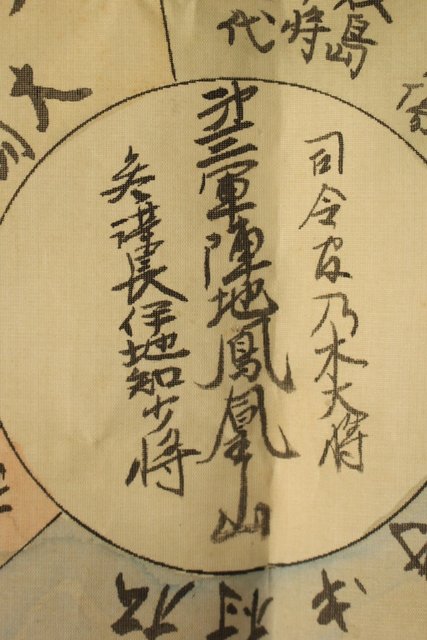 島
将
代
大
司令官乃木大将
第三軍陣地鳳凰山
参謀長伊地知少将